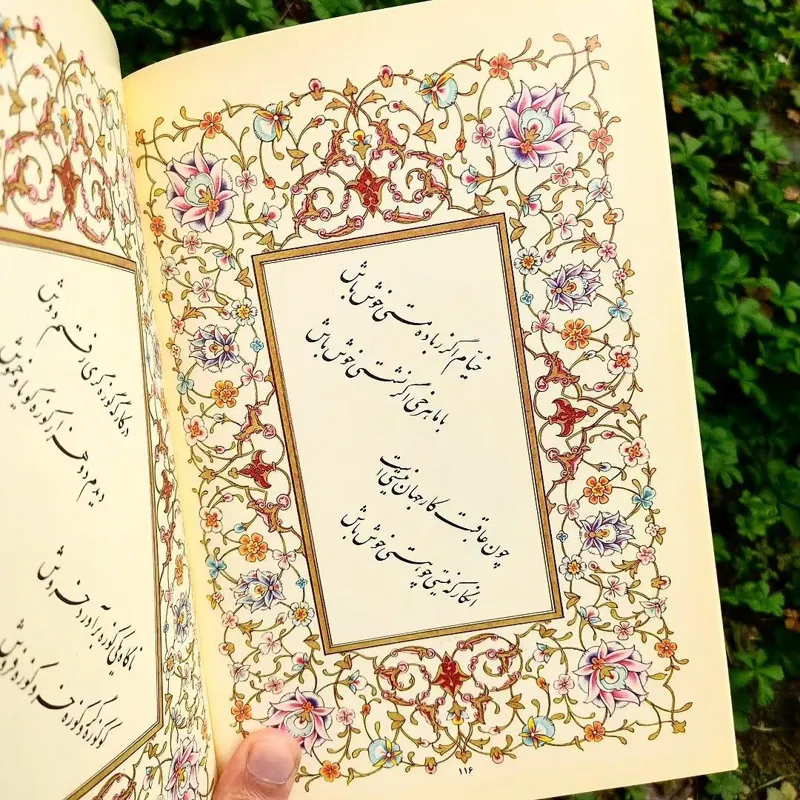 خیام اگر ز باده مستی خوش باش
با ماهرخی اگر نشستی خوش باش
چون عاقبت کار جهان نیستی است
انگار که نیستی چو هستی خوش باش
۱۱۶
در کارگه کوزه گری رفتم دوش
دیدم دو هزار کوزه گویا و خموش
ناگاه یکی کوزه برآورد خروش
کو کوزه گر و کوزه خر و کوزه فروش